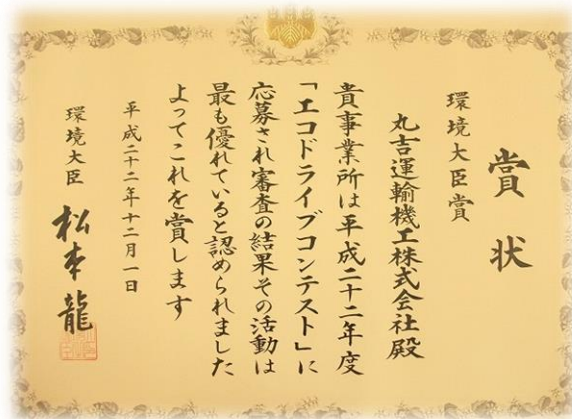 賞状
環境大臣賞
丸吉運輸機工株式会社殿
貴事業所は平成二十二年度
「エコドライブコンテスト」に
応募され審査の結果その活動は
最も優れていると認められました
よってこれを賞します
平成二十二年十二月一日
環境大臣 松本龍